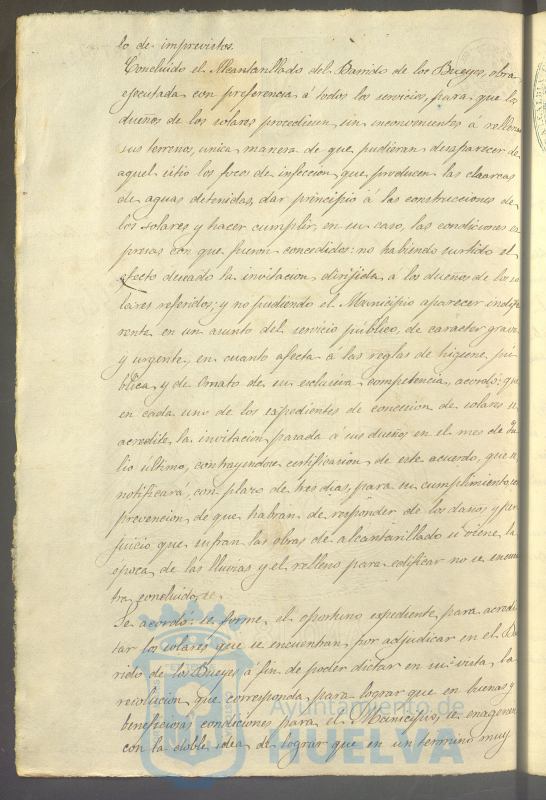 lo de imprevistos.
Concluido el Alcantarillado del Barrido de los Bueyes, obra
ejecutada con preferencia á todos los servicios, para que los
dueños de los solares procediesen sin inconvenientes á rellenar
sus terrenos, única manera de que pudieran desaparecer de
aquel sitio los focos de infeccion que producen las charcas
de aguas detenidas, dar principio á las construcciones de
los solares y hacer cumplir, en su caso, las condiciones es
presas con que fueron concedidos: no habiendo surtido el
efecto deseado la invitacion dirijida a los dueños de los so
lares referidos; y no pudiendo el Municipio aparecer indife
rente en un asunto del servicio público, de caracter grave
y urgente, en cuanto afecta á las reglas de higiene pú
blica y de Ornato de su exclusiva competencia, acordó: que
en cada uno de los expedientes de concesion de solares se
acredite la invitacion pasada á sus dueños en el mes de Ju
lio último, contrayendose certificacion de este acuerdo, que se
notificará, con plazo de tres dias, para su cumplimiento en
prevencion de que habran de responder de los daños y per
juicio que sufran las obras de alcantarillado si viene la
epoca de las lluvias y el relleno para edificar no se encuen
tra concluido.
Se acordó: se forme el oportuno expediente, para acredi
tar los solares que se encuentran por adjudicar en el Ba
rrido de los Bueyes á fin de poder dictar en su vista la
resolucion que corresponda para lograr que en buenas y
beneficiosas condiciones para el Municipio, se enagenen
con la doble idea de lograr que en un termino muy
Ayuntamiento de
HUELVA